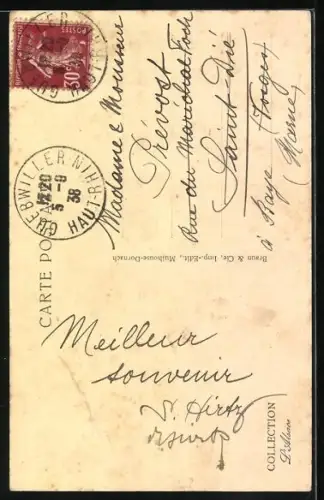 CARTE POSTALE
GUEBWILLER
HAUT-RHIN
12 20
5-9
38
POSTES
30
Madame & Monsieur
Prévost
Rue du Maréchal Foch
Saint-Dié
(Vosges)
à Baye (Marne)
Braun & Cie, Imp.-Édit., Mulhouse-Dornach
Meilleur
souvenir
Hirtz
COLLECTION
L'Alsace